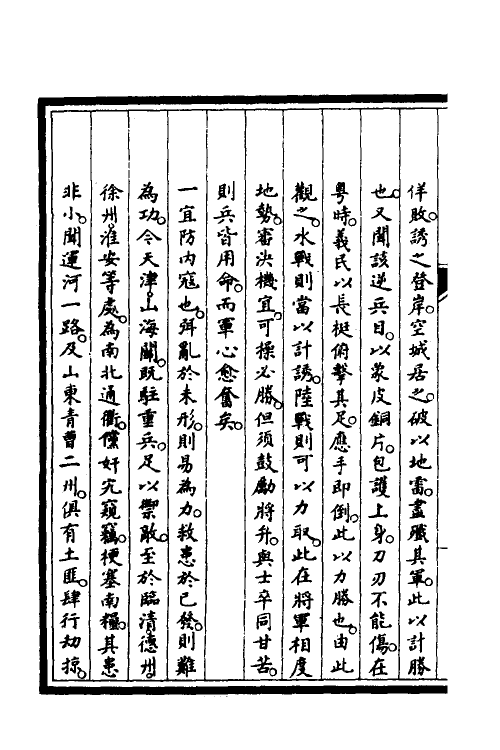 佯敗。誘之登岸。空城居之。破以地雷。盡殲其軍。此以計勝
也。又聞該逆兵目。以蒙皮銅片。包護上身。刀刃不能傷。在
粵時。義民以長梃俯擊其足。應手即倒。此以力勝也。由此
觀之。水戰則當以計誘。陸戰則可以力取。此在將軍相度
地勢。審決機宜。可操必勝。但須鼓勵將升。與士卒同甘苦。
則兵皆用命。而軍心愈奮矣。
一宜防內寇也。弭亂於未形。則易為力。救患於已發。則難
為功。今天津山海關。既駐重兵。足以禦敵。至於臨清德州。
徐州。淮安等處。為南北通衢。儻奸宄窺竊。梗塞南糧。其患
非小。聞運河一路。及山東青曹二州。俱有土匪。肆行劫掠。